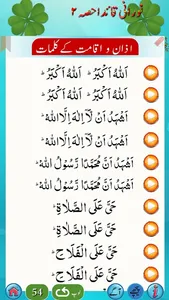 نورانی قاعدہ حصہ ۲
اذان و اقامت کے کلمات
اَللّٰهُ اَکْبَرُ ؕ اَللّٰهُ اَکْبَرُ ؕ
اَللّٰهُ اَکْبَرُ ؕ اَللّٰهُ اَکْبَرُ ؕ
اَشْهَدُ اَنْ لَّآ اِلٰهَ اِلَّا اللّٰهُ ؕ
اَشْهَدُ اَنْ لَّآ اِلٰهَ اِلَّا اللّٰهُ ؕ
اَشْهَدُ اَنَّ مُحَمَّدًا رَّسُوْلُ اللّٰهِ ؕ
اَشْهَدُ اَنَّ مُحَمَّدًا رَّسُوْلُ اللّٰهِ ؕ
حَیَّ عَلَی الصَّلَاةِ ؕ
حَیَّ عَلَی الصَّلَاةِ ؕ
حَیَّ عَلَی الْفَلَاحِ ؕ
حَیَّ عَلَی الْفَلَاحِ ؕ
54